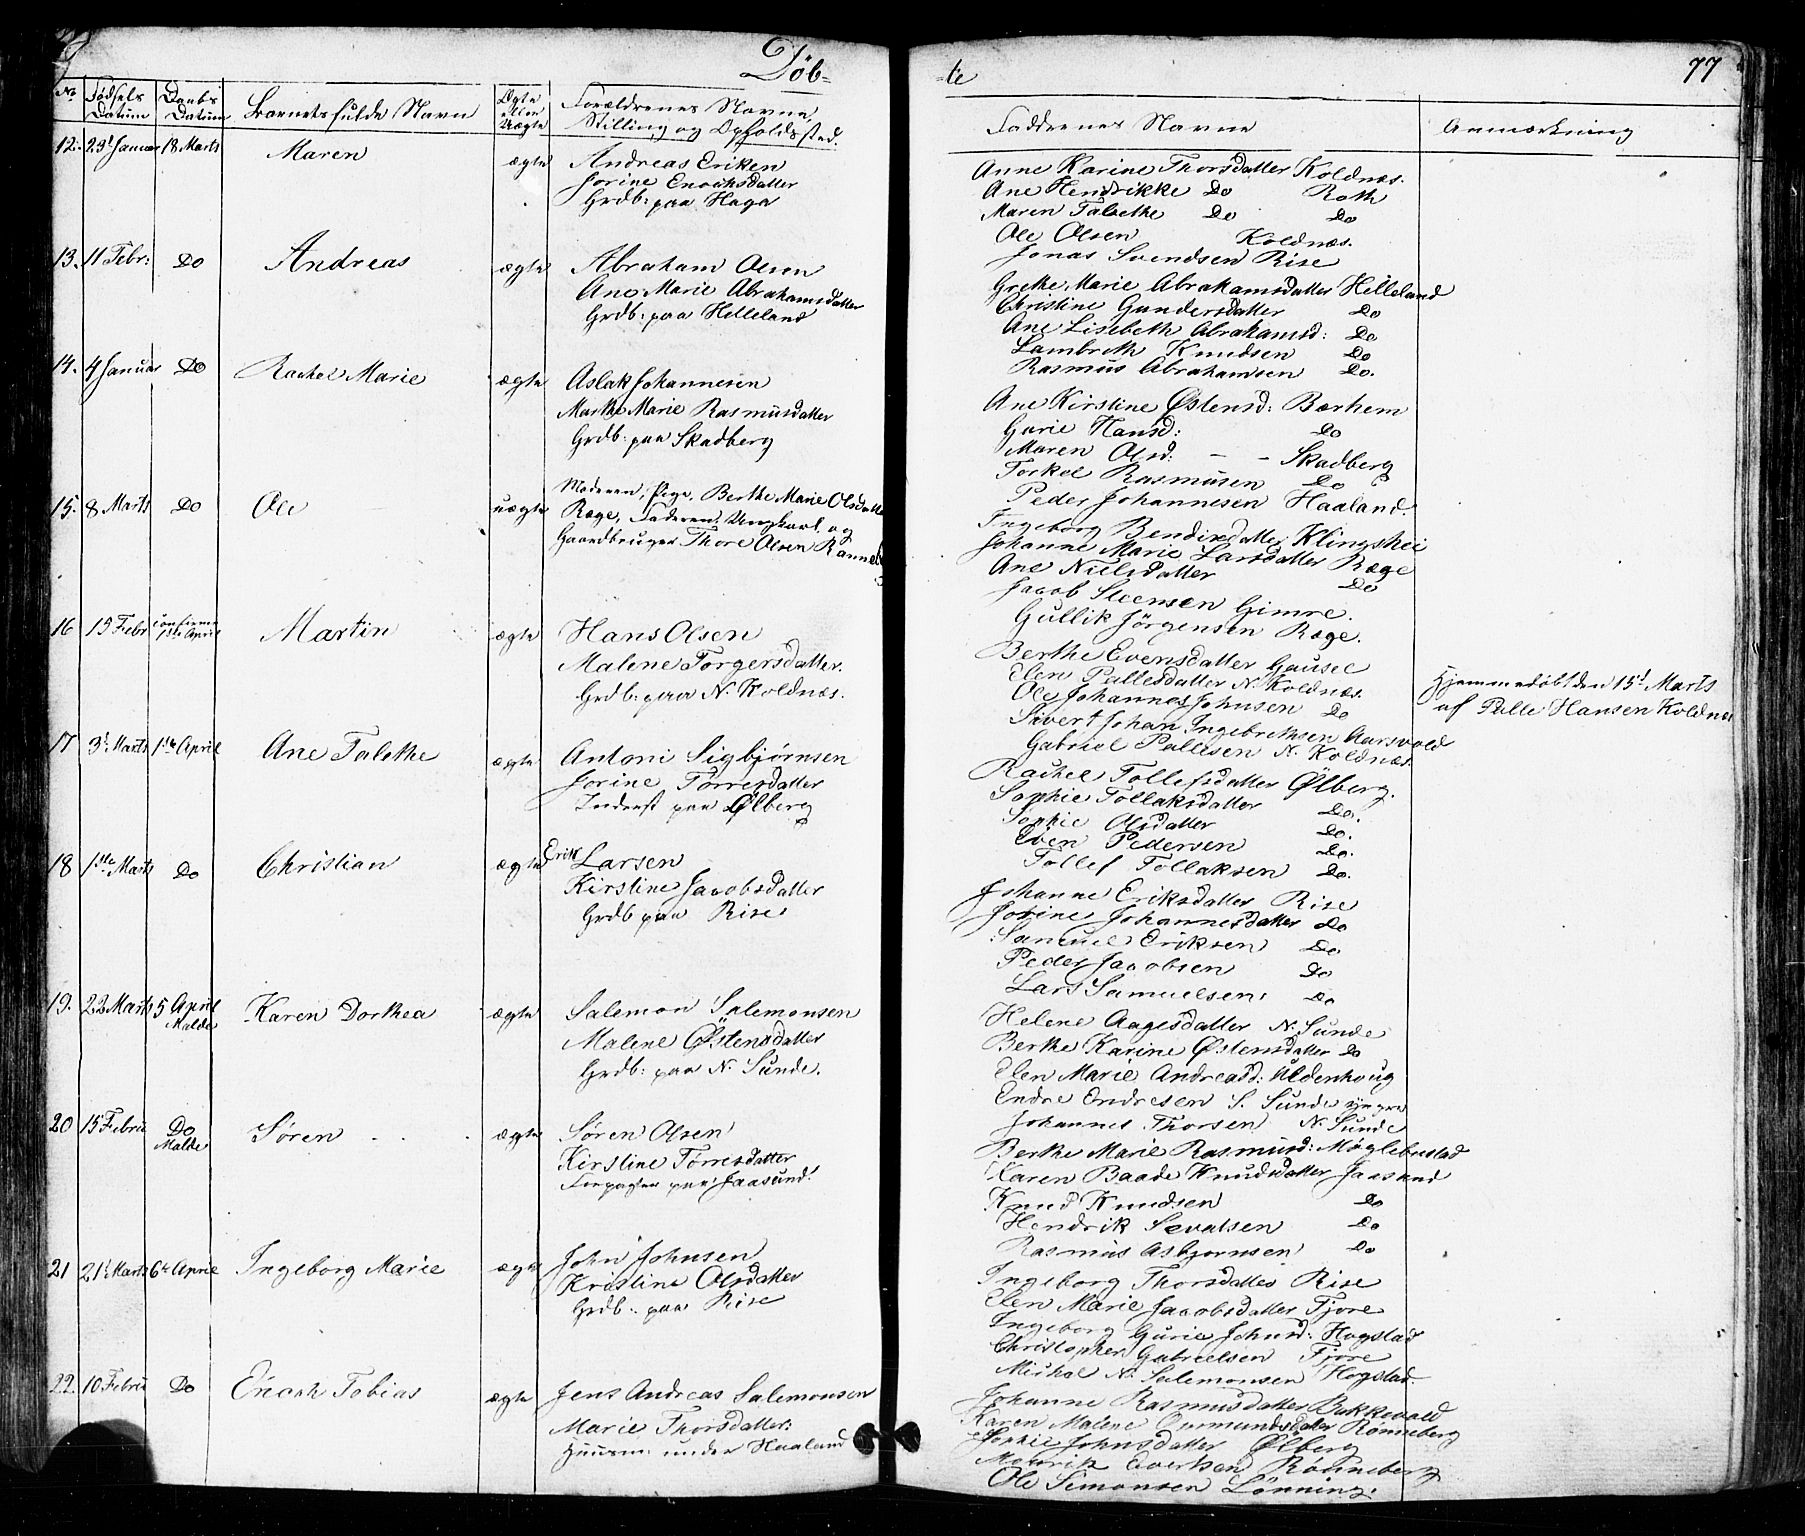 Døb-
-te
77
No.
Fødsels
Datum
Daabs
Datum
Barnets fulde Navn
Ægte
eller
Uægte
Forældrenes Navne,
Stilling og Opholdssted.
Faddernes Navne
Anmærkning
12. 23d Januar 18 Marts Maren ægte Andreas Eriksen
Jorine Enochsdatter
Grdb: paa Haga
Anne Karine Thorsdatter Koldnæs.
Ane Hendrikke Do Roth
Maren Talethe Do Do
Ole Olsen Koldnæs.
Jonas Svendsen Risе
13. 11 Febr: Do Andreas ægte Abraham Olsen
Ane Marie Abrahamsdatter
Grdb: paa Helleland
Grethe Marie Abrahamsdatter Helleland
Christine Gundersdatter Do
Ane Lisebeth Abrahamsd: Do
Lambreth Knudsen Do
Rasmus Abrahamsen Do.
14. 4 Januar Do Rachel Marie ægte Aslak Johannesen
Marthe Marie Rasmusdatter
Grdb: paa Skadberg
Ane Kirstine Østensd: Bærhem
Gurie Hansd: Do
Maren Olsd: - - Skadberg
Torkel Rasmusen Do
Peder Johannesen Haaland.
15. 8 Marts Do Ole uægte Moderen, Pige, Berthe Marie Olsdatter
Ræge, Faderen, Ungkarl og
Gaardbruger Thore Olsen Ranneberg
Ingeborg Bendixdatter Klingshei
Johanne Marie Larsdatter Ræge
Ane Nielsdatter Do
Jacob Steensen Gimre.
Gullik Jörgensen Ræge.
16 15 Febr confirmeret 1ste April Martin ægte Hans Olsen
Malene Torgersdatter.
Grdb: paa N. Koldnæs.
Berthe Evensdatter Gausel
Elen Pallesdatter N. Koldnæs.
Ole Johannes Johnsen Do
Sivert Johan Ingebrethsen Aarsvold
Gabriel Pallesen N. Koldnæs
Hjemmedøbt den 15d Marts
af Palle Hansen Koldnæs
17 3d Marts 1ste April Ane Talethe ægte Antoni Sigbjørnsen
Jorine Tørresdatter
Inderst paa Ølberg
Rachel Tollefsdatter Ølberg.
Sophie Tollaksdatter Do.
Sophie Olsdatter Do.
Even Pedersen Do.
Tollef Tollaksen Do.
18 1ste Marts Do Christian ægte Erik Larsen
Kirstine Jacobsdatter
Grdb paa Rise
Johanne Eriksdatter Rise
Jorine Johannesdatter Do
Samuel Eriksen Do
Peder Jacobsen Do
Lars Samuelsen Do
19. 22 Marts 5 April Malde Karen Dorthea ægte Salemon Salemonsen
Malene Østensdatter
Grdb: paa N. Sunde.
Helene Aagesdatter N. Sunde
Berthe Karine Østensdatter Do
Elen Marie Andreasd: Uldenhoug
Endre Endresen S. Sunde yngre
Johannes Thorsen N. Sunde
20 15 Febru Do Malde Søren ægte Søren Olsen
Kirstine Tørresdatter
Forpagter paa Jaasund.
Berthe Marie Rasmusd: Møglebustad
Karen Baade Knudsdatter Jaasund
Knud Knudsen Do
Hendrik Sevalsen Do
Rasmus Asbjørnsen Do
21 21d Marts 6te April Ingeborg Marie ægte John Johnsen
Kristine Olsdatter
Grdb: paa Rise
Ingeborg Thorsdatter Rise
Elen Marie Jacobsdatter Tjore
Ingeborg Gurie Johnsd: Hogstad
Christopher Gabrielsen Tjore
Michal N. Salemonsen Hogstad.
22. 10 Febru Do Enoch Tobias ægte Jens Andreas Salemonsen
Marie Thorsdatter:
Huusm: under Haaland
Johanne Rasmusdatter Bukkevold
Karen Malene Ommundsdatter Rønneberg
Sophie Johnsdatter Ølberg
Evertsen Rønneberg
Ole Simonsen Lønning.